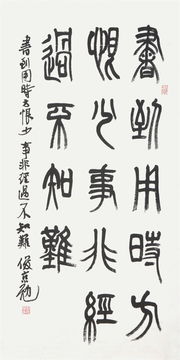 書到用時方
恨少事非經
過不知難
書到用時方恨少事非經過不知難